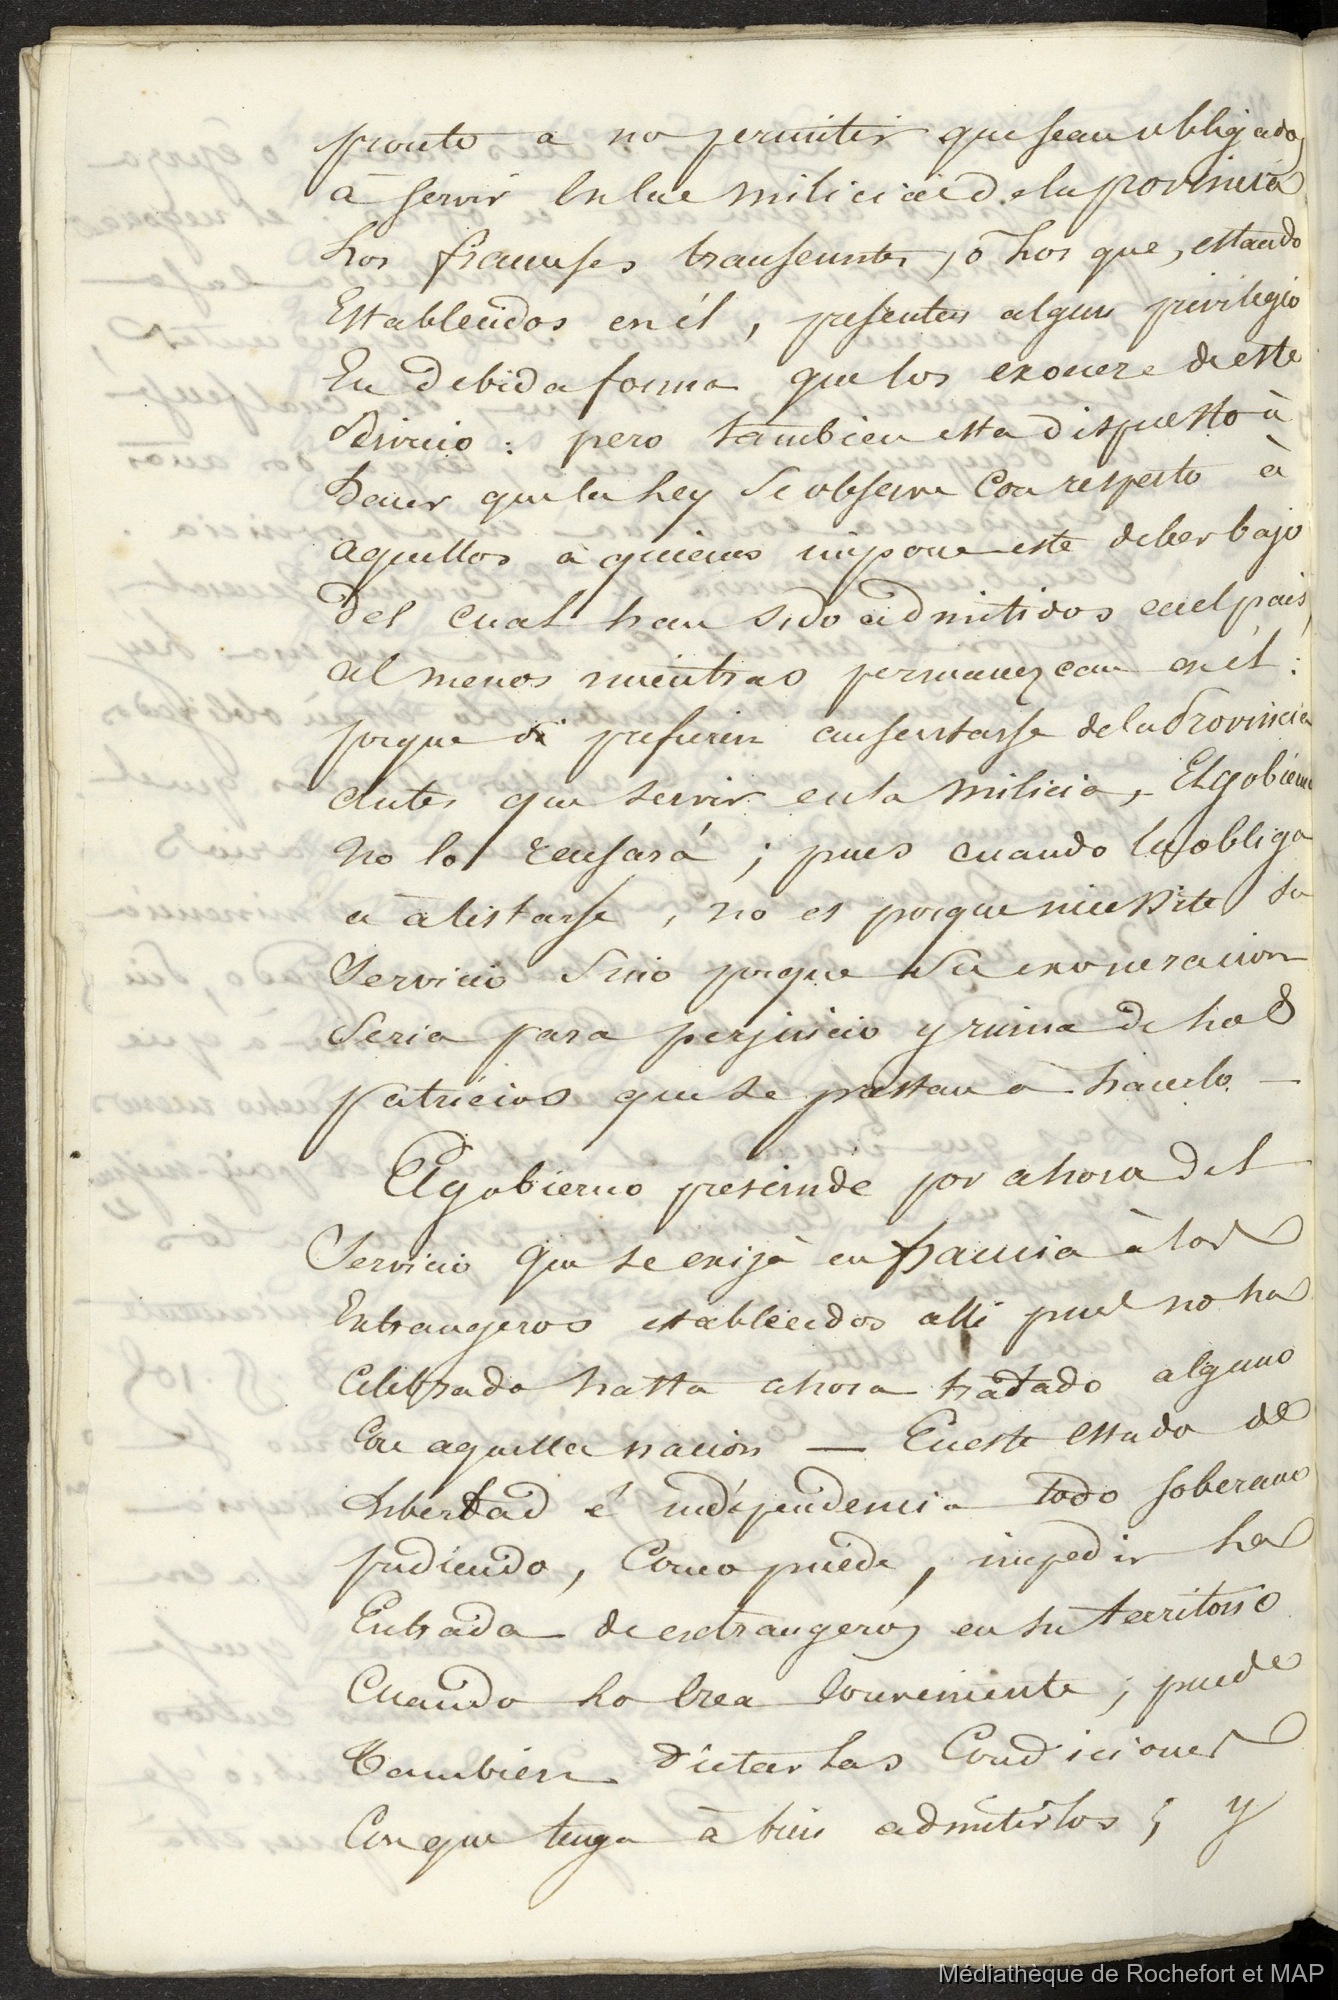 pronto a no permitir que sean obligados
à servir en las milicias de la provincia
los franceses transeuntes, ó los que, estando
Establecidos en él, presenten algun privilegio
En debida forma que los exonere de este
Servicio : pero tambien esta dispuesto à
hacer que la ley se observe con respecto à
aquellos à quienes impone este deber bajo
del cual han sido admitidos en el pais,
al menos mientras permanezcan en él :
porque si prefieren ausentarse de la Provincia
antes que servir en la milicia, El gobierno
no lo reusará ; pues cuando los obliga
a àlistarse, no es porque necesite su
Servicio Sino porque Su exoneracion
Seria para perjuicio y ruina de los
patricios que se prestan a hacerlo —
El gobierno prescinde por ahora del
Servicio que se exija en francia à los
Extrangeros establecidos alli pues no ha
Celebrado hasta ahora tratado alguno
Con aquella nacion — En este estado de
libertad é independencia todo soberano
pudiendo, Como puede, impedir la
Entrada de extrangeros en su territorio
Cuando lo crea Conveniente ; puede
Tambien dictar las Condiciones
Con que tenga à bien admitirlos ; y
Médiathèque de Rochefort et MAP